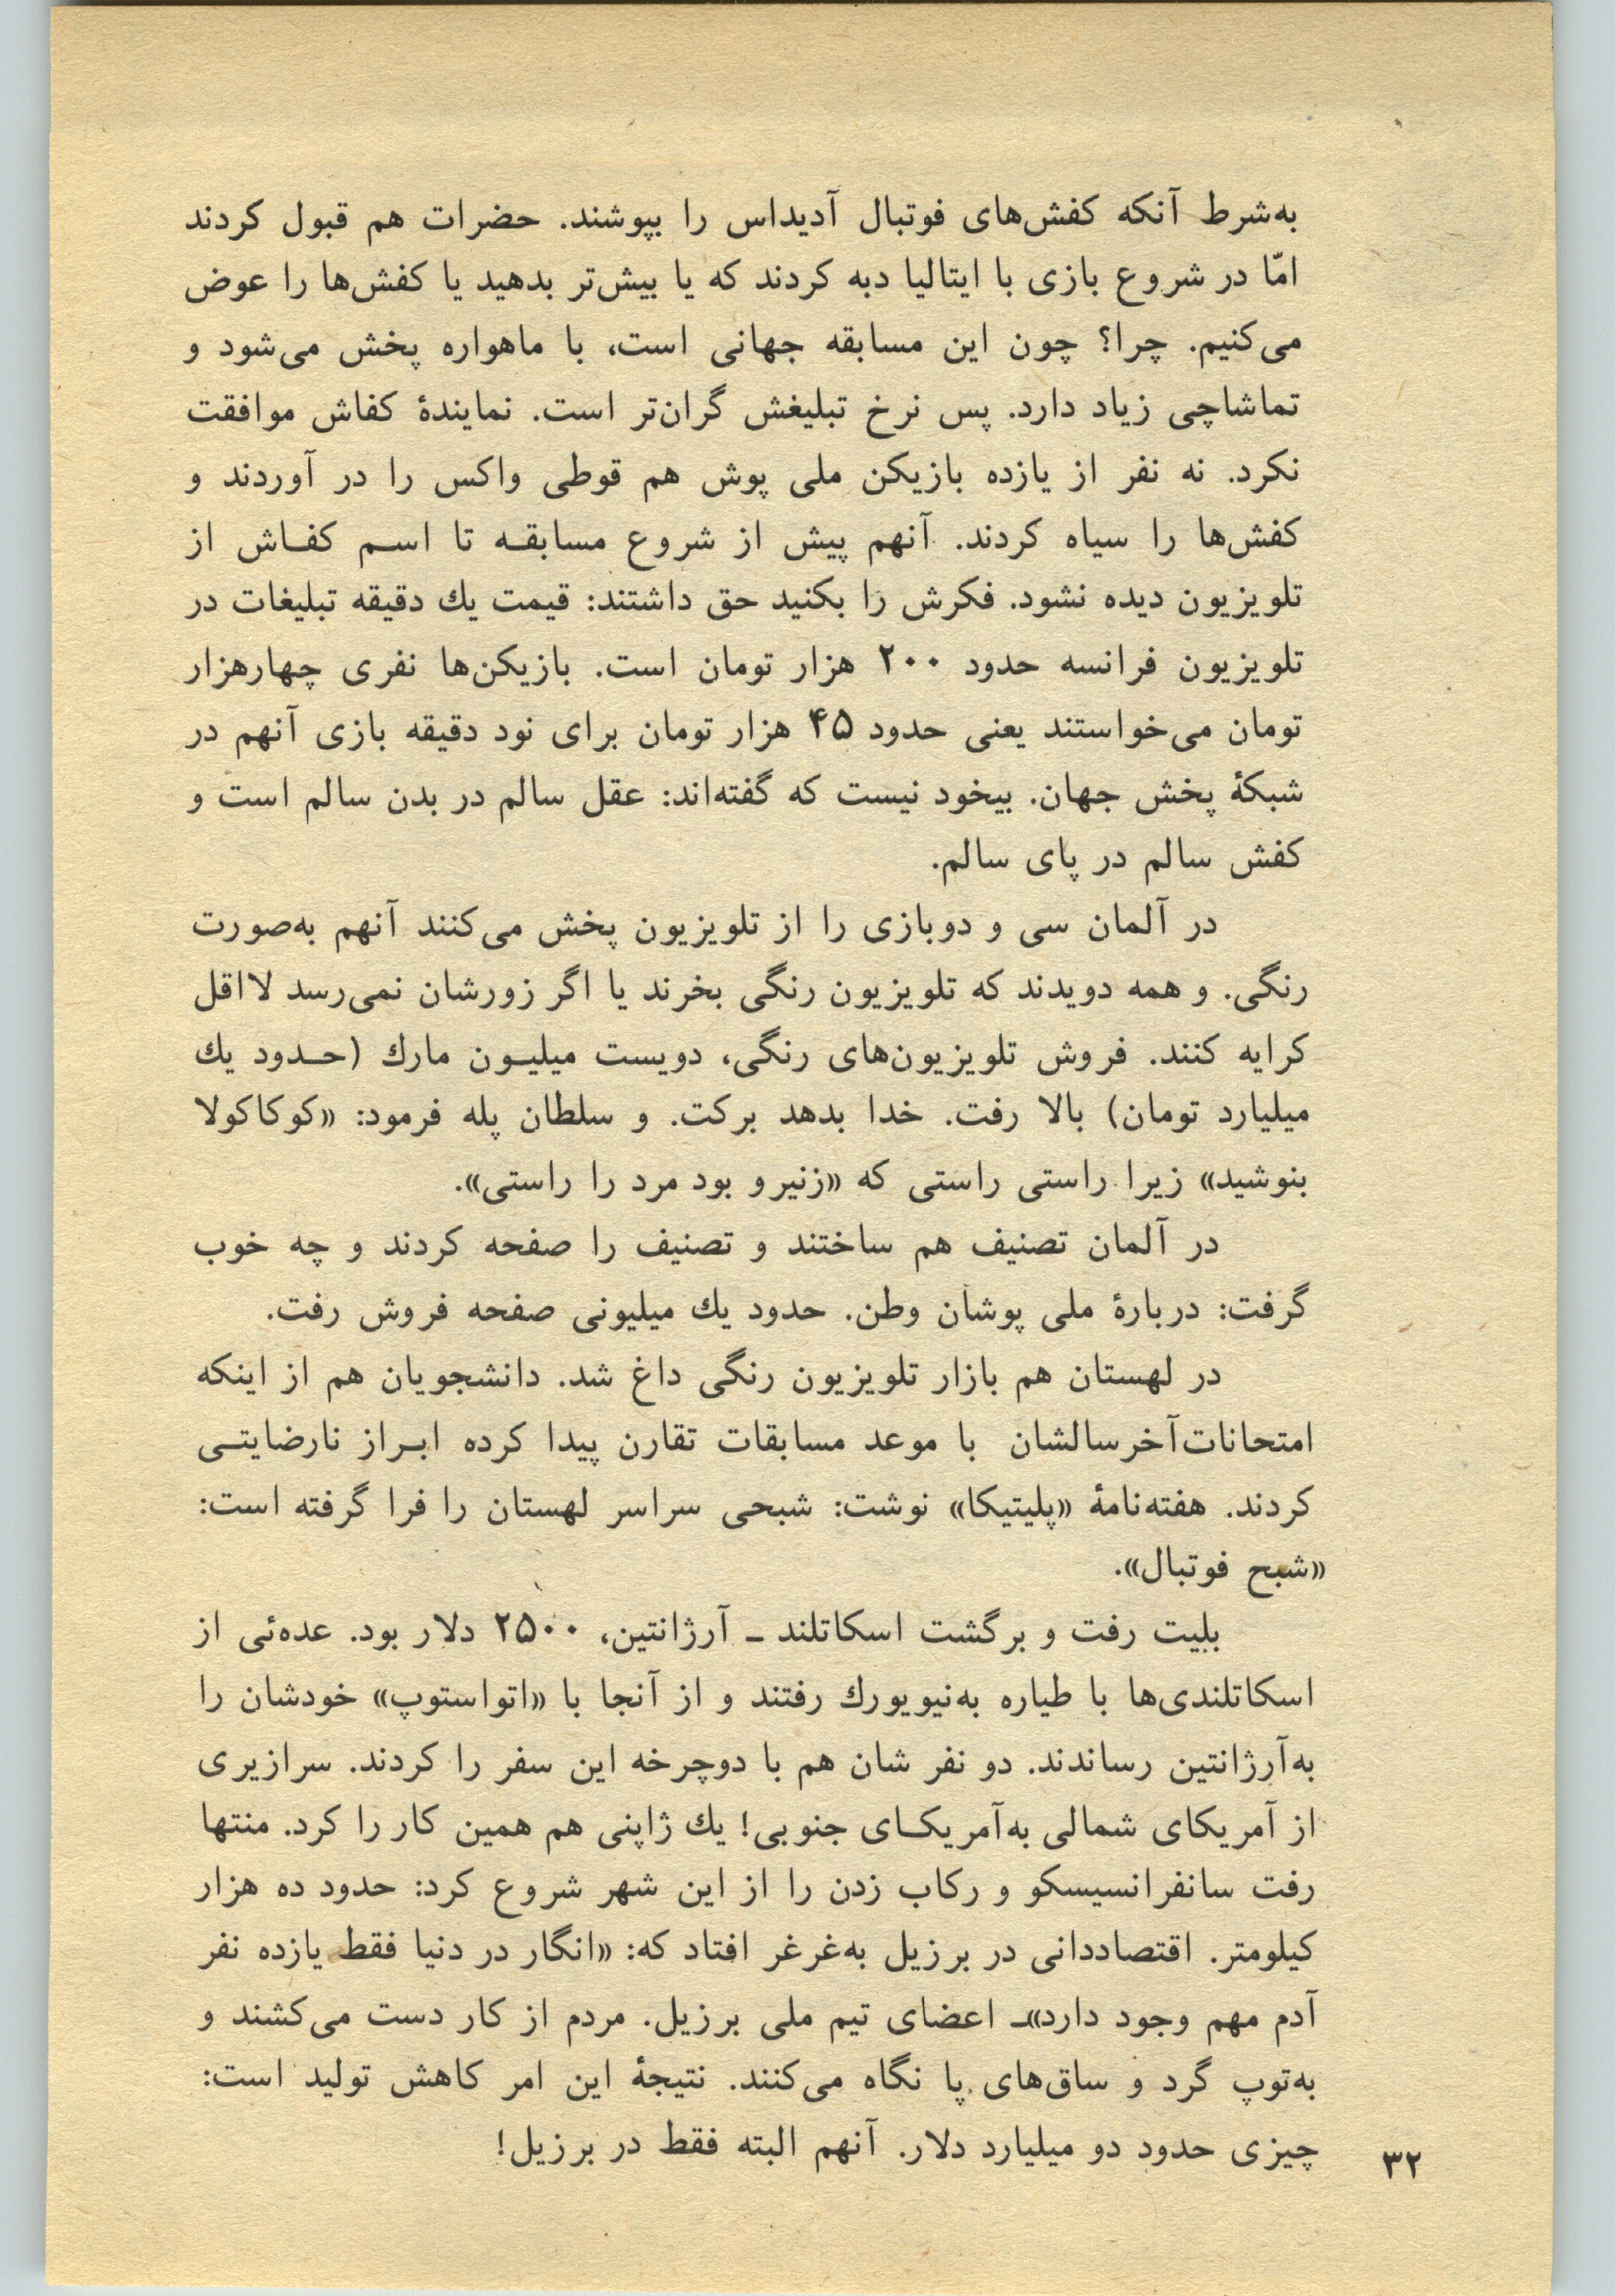 به‌شرط آنکه کفش‌های فوتبال آدیداس را بپوشند. حضرات هم قبول کردند
امّا در شروع بازی با ایتالیا دبه کردند که یا بیش‌تر بدهید یا کفش‌ها را عوض
می‌کنیم. چرا؟ چون این مسابقه جهانی است، با ماهواره پخش می‌شود و
تماشاچی زیاد دارد. پس نرخ تبلیغش گران‌تر است. نمایندهٔ کفاش موافقت
نکرد. نه نفر از یازده بازیکن ملی پوش هم قوطی واکس را در آوردند و
کفش‌ها را سیاه کردند. آنهم پیش از شروع مسابقـه تا اسـم کفـاش از
تلویزیون دیده نشود. فکرش را بکنید حق داشتند: قیمت يك دقیقه تبلیغات در
تلویزیون فرانسه حدود ۲۰۰ هزار تومان است. بازیکن‌ها نفری چهارهزار
تومان می‌خواستند یعنی حدود ۴۵ هزار تومان برای نود دقیقه بازی آنهم در
شبکهٔ پخش جهان. بیخود نیست که گفته‌اند: عقل سالم در بدن سالم است و
کفش سالم در پای سالم.
در آلمان سی و دوبازی را از تلویزیون پخش می‌کنند آنهم به‌صورت
رنگی. و همه دویدند که تلویزیون رنگی بخرند یا اگر زورشان نمی‌رسد لااقل
کرایه کنند. فروش تلویزیون‌های رنگی، دویست میلیـون مارك (حـدود يك
میلیارد تومان) بالا رفت. خدا بدهد برکت. و سلطان پله فرمود: «کوکاکولا
بنوشید» زیرا راستی راستی که «زنیرو بود مرد را راستی».
در آلمان تصنیف هم ساختند و تصنیف را صفحه کردند و چه خوب
گرفت: دربارهٔ ملی پوشان وطن. حدود يك میلیونی صفحه فروش رفت.
در لهستان هم بازار تلویزیون رنگی داغ شد. دانشجویان هم از اینکه
امتحانات‌آخرسالشان با موعد مسابقات تقارن پیدا کرده ابـراز نارضایتـی
کردند. هفته‌نامهٔ «پلیتیکا» نوشت: شبحی سراسر لهستان را فرا گرفته است:
«شبح فوتبال».
بلیت رفت و برگشت اسکاتلند ـ آرژانتین، ۲۵۰۰ دلار بود. عده‌ئی از
اسکاتلندی‌ها با طیاره به‌نیویورك رفتند و از آنجا با «اتواستوپ» خودشان را
به‌آرژانتین رساندند. دو نفر شان هم با دوچرخه این سفر را کردند. سرازیری
از آمریکای شمالی به‌آمریکـای جنوبی! يك ژاپنی هم همین کار را کرد. منتها
رفت سانفرانسیسکو و رکاب زدن را از این شهر شروع کرد: حدود ده هزار
کیلومتر. اقتصاددانی در برزیل به‌غرغر افتاد که: «انگار در دنیا فقط یازده نفر
آدم مهم وجود دارد»ـ اعضای تیم ملی برزیل. مردم از کار دست می‌کشند و
به‌توپ گرد و ساق‌های پا نگاه می‌کنند. نتیجهٔ این امر کاهش تولید است:
چیزی حدود دو میلیارد دلار. آنهم البته فقط در برزیل!
۳۲